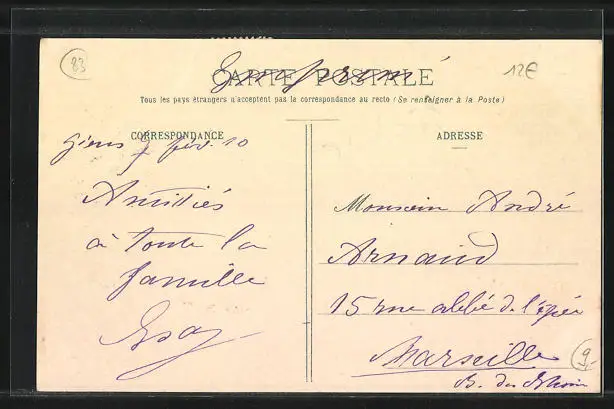 83
CARTE POSTALE
Imprimé
12€
Tous les pays étrangers n'acceptent pas la correspondance au recto (Se renseigner à la Poste)
CORRESPONDANCE
Giens 7 fév. 10
Amitiés
à toute la
famille
ADRESSE
Monsieur André
Arnaud
15 rue abbé de l'épée
Marseille
B. du Rhône
9